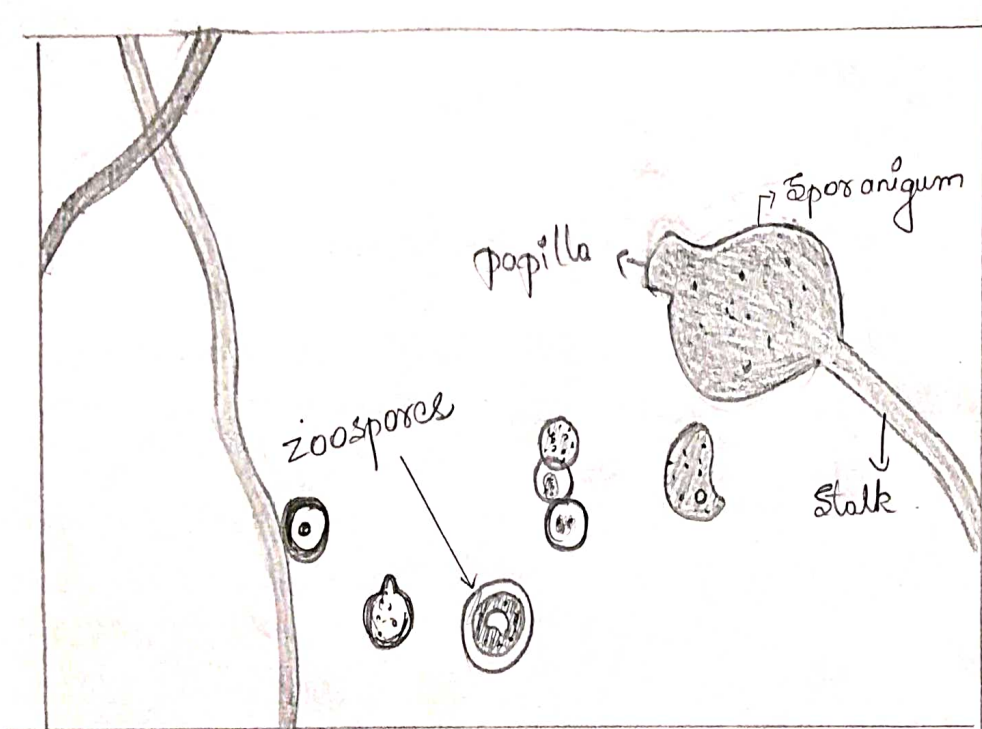 Sporanigum
papilla
zoospores
Stalk